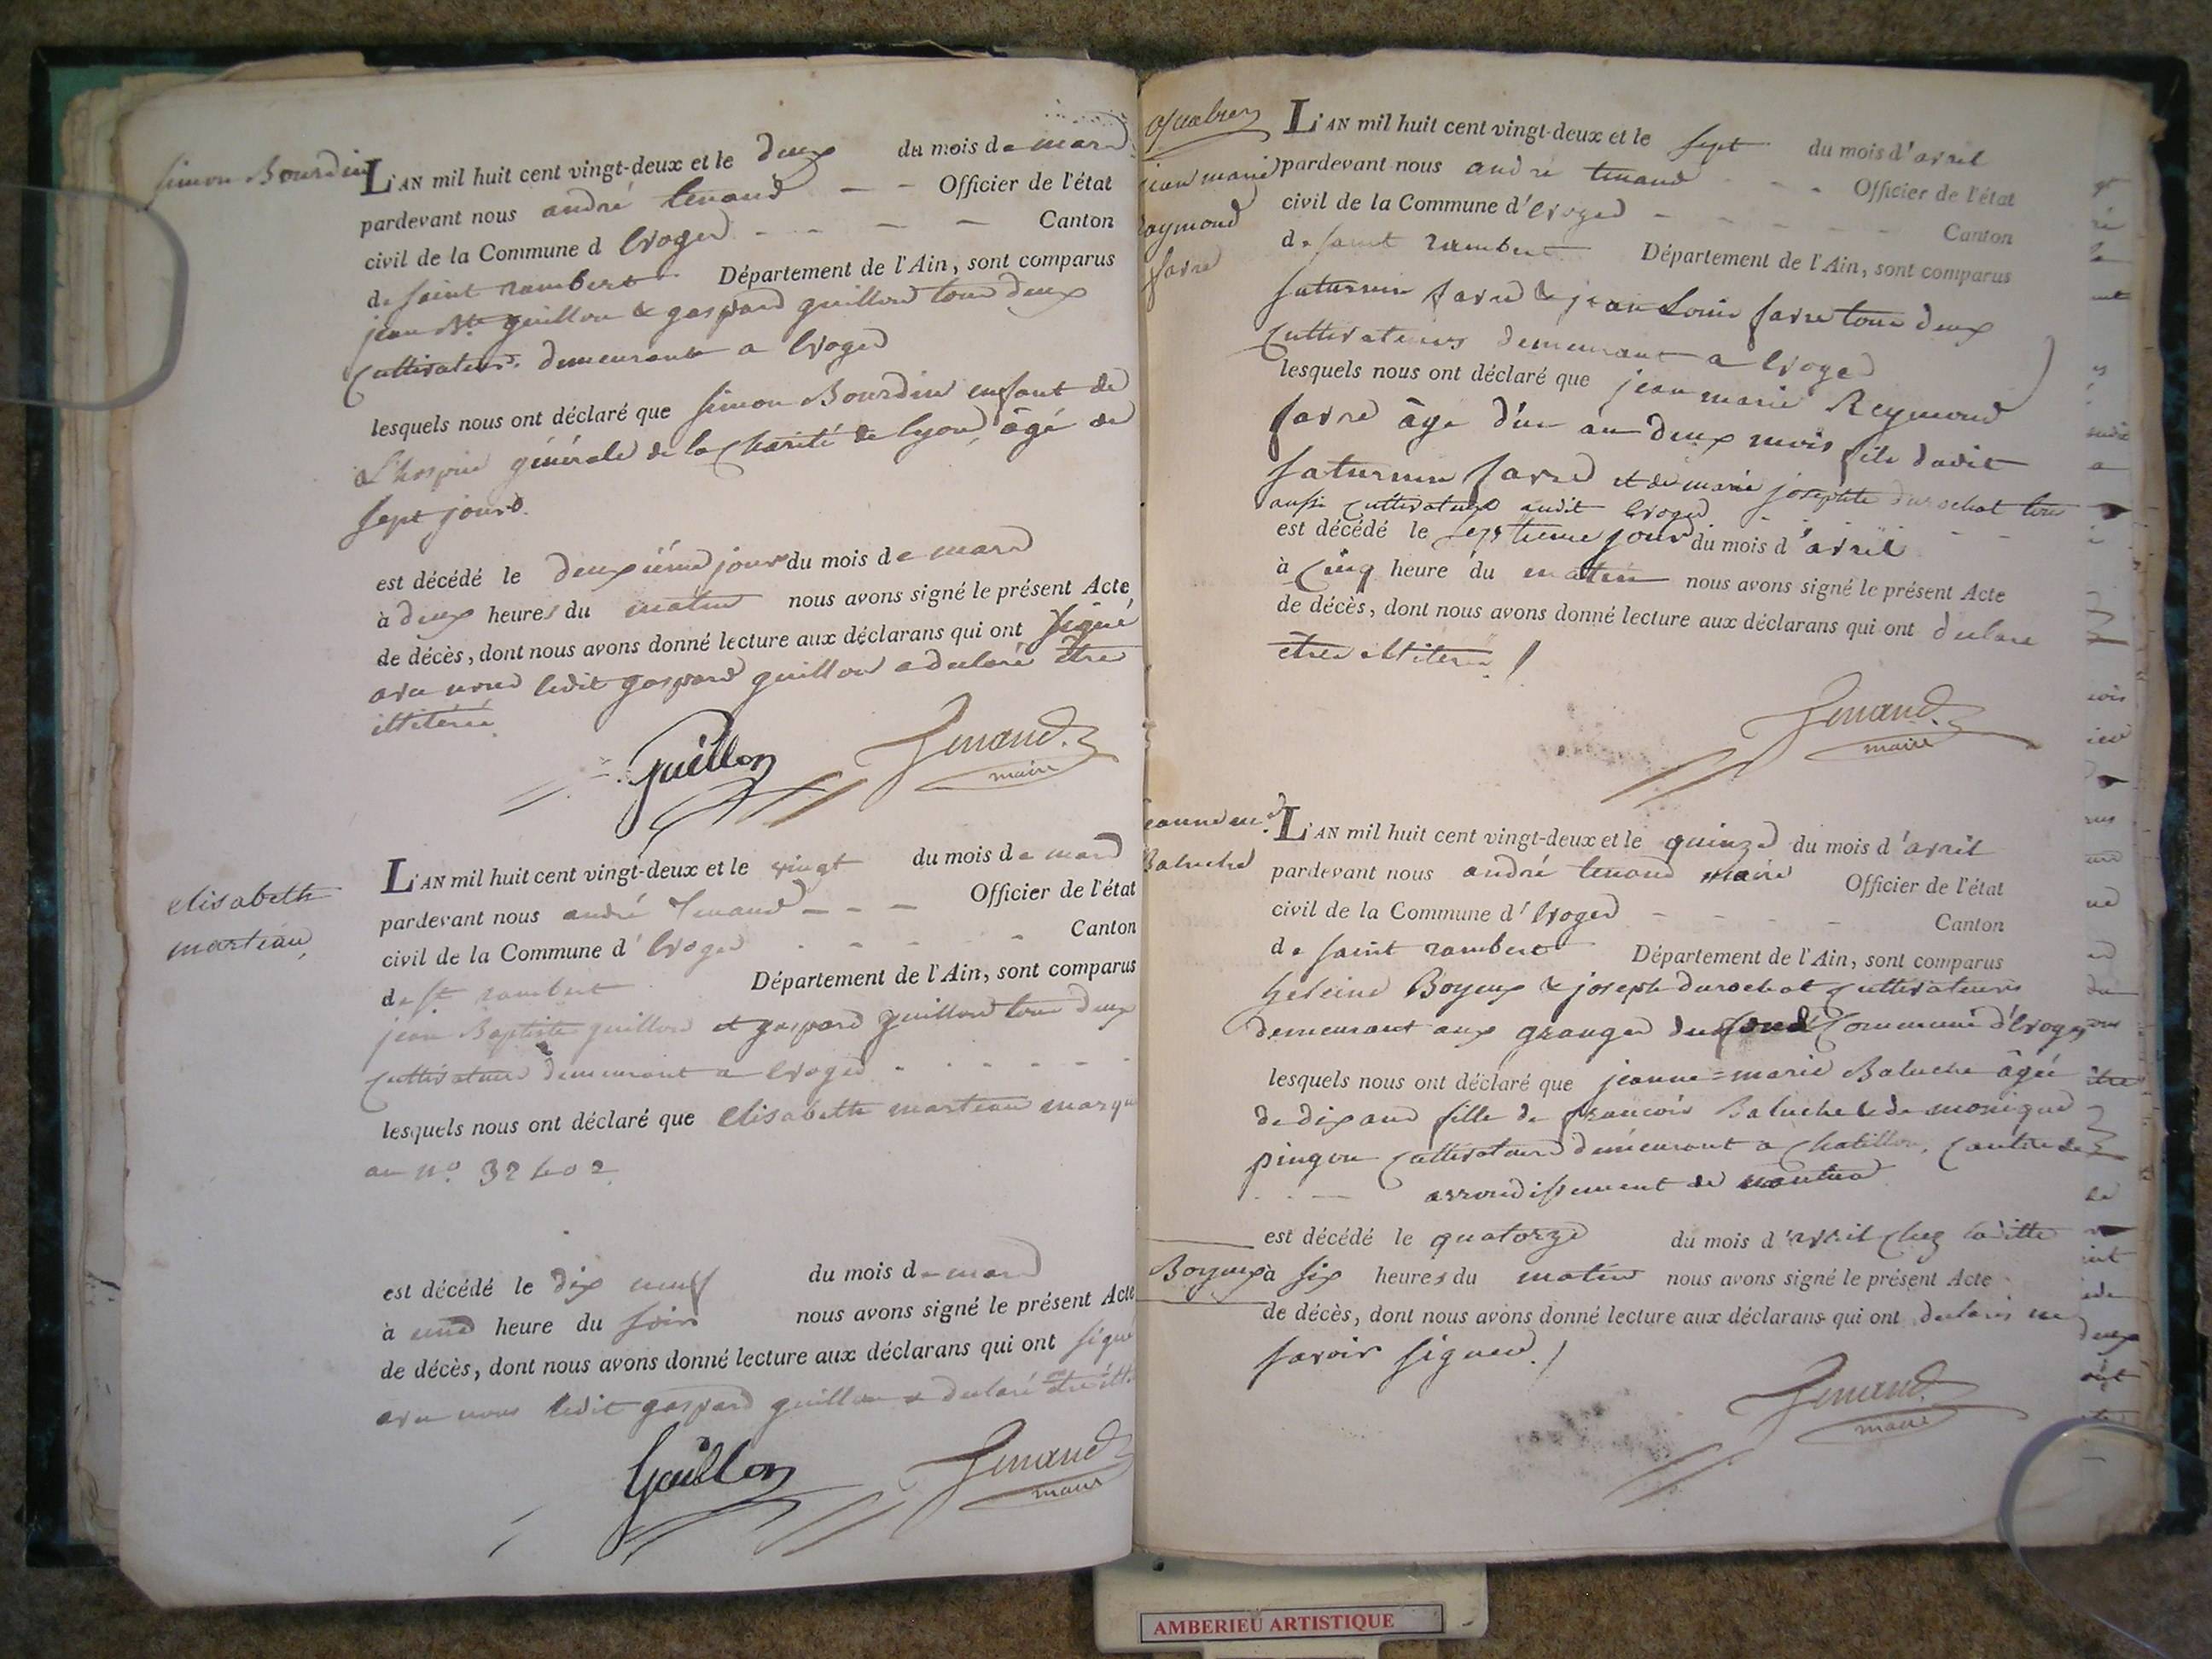 simon Bourdin
L'AN mil huit cent vingt-deux et le deux du mois de mars
pardevant nous andré tenand Officier de l'état
civil de la Commune d Evoges Canton
de saint rambert Département de l'Ain, sont comparus
jean Bte guillon & gaspard guillon tous deux
Cultivateurs demeurants a Evoges
lesquels nous ont déclaré que simon Bourdin enfant de
L'hospice générale de la Charité de lyon, âgé de
sept jours.
est décédé le deuxiéme jour du mois de mars
à deux heures du matin nous avons signé le présent Acte
de décès, dont nous avons donné lecture aux déclarans qui ont signé
avec nous ledit gaspard guillon a declaré être
illitéré
Guillon Tenand
maire
elisabeth
marteau
L'AN mil huit cent vingt-deux et le vingt du mois de mars
pardevant nous andré Tenand Officier de l'état
civil de la Commune d'Evoges Canton
de st rambert Département de l'Ain, sont comparus
jean Baptiste guillon et gaspard guillon tous deux
Cultivateurs demeurant a Evoges
lesquels nous ont déclaré que elisabeth marteau marqu
au no. 32402
est décédé le dix neuf du mois de mars
à une heure du soir nous avons signé le présent Acte
de décès, dont nous avons donné lecture aux déclarans qui ont signé
avec nous ledit gaspard guillon a declaré être
Guillon Tenand
maire
jean marie
Raymond
favre
L'AN mil huit cent vingt-deux et le sept du mois d'avril
pardevant nous andré tenand Officier de l'état
civil de la Commune d'Evoges Canton
de saint rambert Département de l'Ain, sont comparus
saturnin favre & jean Louis favre tous deux
Cultivateurs demeurant a Evoges
lesquels nous ont déclaré que jean marie Reymond
favre âgé d'un an deux mois fils dudit
saturnin favre et de marie josephte durochat tous
aussi cultivateurs audit Evoges
est décédé le septieme jour du mois d'avril
à Cinq heure du matin nous avons signé le présent Acte
de décès, dont nous avons donné lecture aux déclarans qui ont declare
etre illiteres
Tenand
maire
jeanne marie
Baluche
L'AN mil huit cent vingt-deux et le quinze du mois d'avril
pardevant nous andré tenand maire Officier de l'état
civil de la Commune d'Evoges Canton
de saint rambert Département de l'Ain, sont comparus
Boyeux & joseph durochat Cultivateurs
demeurant aux granges du Commune d'Evoges
lesquels nous ont déclaré que jeanne=marie Baluche âgée
de dix ans fille de francois Baluche & de monique
pingon Cultivateurs demeurant a Chatillon,
arrondissement de nantua
est décédé le quatorze du mois d'avril Chez laditte
Boyeux à six heures du matin nous avons signé le présent Acte
de décès, dont nous avons donné lecture aux déclarans qui ont declarés ne
savoir signer
Tenand
maire
AMBERIEU ARTISTIQUE